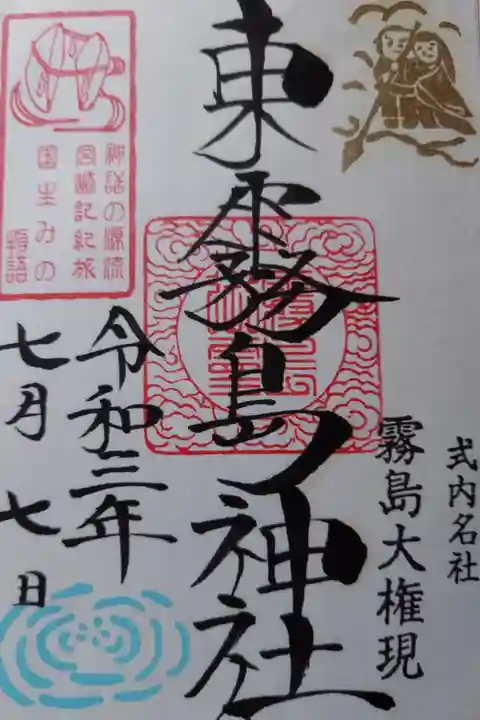 式内名社
霧島大権現
東霧島神社
令和三年
七月七日
神話の源流
宮崎記紀旅
国生みの
物語